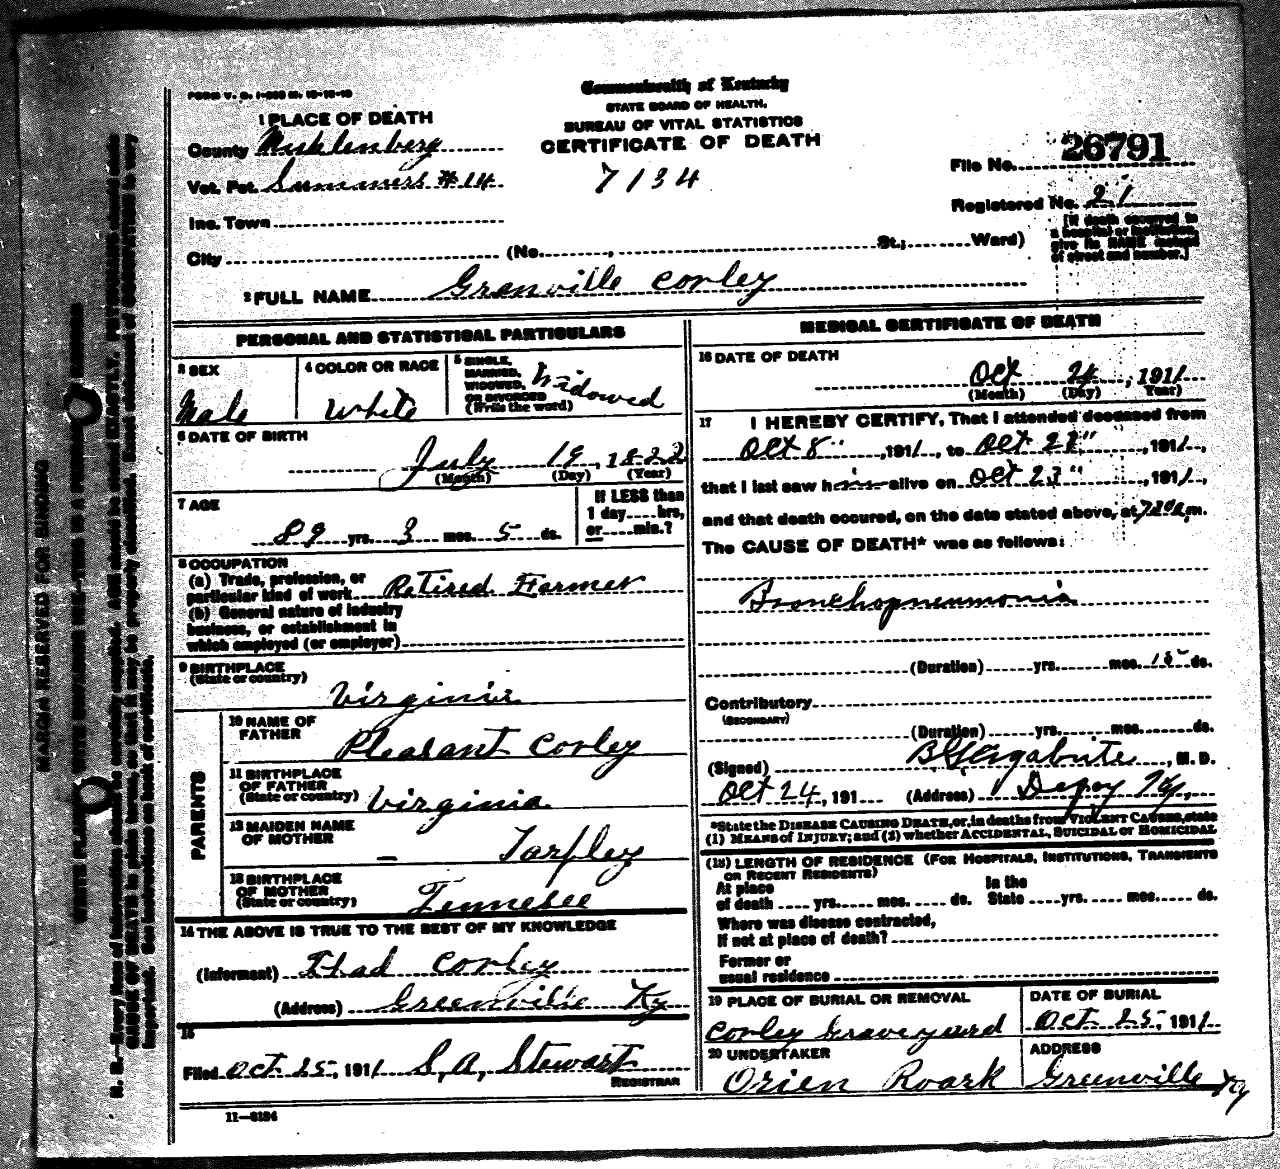 FORM V. S. 1-
Commonwealth of Kentucky
STATE BOARD OF HEALTH.
BUREAU OF VITAL STATISTICS
CERTIFICATE OF DEATH
7134
1 PLACE OF DEATH
County Muhlenberg
Vot. Pct. Summers #14
Inc. Town
City (No. , St.; Ward)
File No. 26791
Registered No. 21
[If death occurred in
a hospital or institution,
give its NAME instead
of street and number.]
2 FULL NAME Granville Corley
PERSONAL AND STATISTICAL PARTICULARS
3 SEX
Male
4 COLOR OR RACE
White
5 SINGLE,
MARRIED,
WIDOWED,
OR DIVORCED
(Write the word)
Widowed
6 DATE OF BIRTH
July 19, 1822
(Month) (Day) (Year)
7 AGE
89 yrs. 3 mos. 5 ds.
If LESS than
1 day....hrs,
or.....min.?
8 OCCUPATION
(a) Trade, profession, or
particular kind of work Retired Farmer
(b) General nature of industry
business, or establishment in
which employed (or employer)
9 BIRTHPLACE
(State or country)
Virginia
PARENTS
10 NAME OF
FATHER
Pleasant Corley
11 BIRTHPLACE
OF FATHER
(State or country)
Virginia
12 MAIDEN NAME
OF MOTHER
— Tarpley
13 BIRTHPLACE
OF MOTHER
(State or country)
Tennesee
14 THE ABOVE IS TRUE TO THE BEST OF MY KNOWLEDGE
(Informant) Thad Corley
(Address) Greenville Ky
15
Filed Oct 25, 1911 S, A, Stewart
REGISTRAR
11—8184
MEDICAL CERTIFICATE OF DEATH
16 DATE OF DEATH
Oct 24, 1911
(Month) (Day) (Year)
17 I HEREBY CERTIFY, That I attended deceased from
Oct 8", 1911, to Oct 23", 1911,
that I last saw him alive on Oct 23", 1911,
and that death occured, on the date stated above, at 7 30 a m.
The CAUSE OF DEATH* was as follows:
Bronchopneumonia
(Duration) yrs. mos. 15 ds.
Contributory
(SECONDARY)
(Duration) yrs. mos. ds.
(Signed) , M. D.
Oct 24, 191 (Address) Depoy Ky,
*State the DISEASE CAUSING DEATH, or, in deaths from VIOLENT CAUSES, state
(1) MEANS of INJURY; and (2) whether ACCIDENTAL, SUICIDAL or HOMICIDAL
(18) LENGTH OF RESIDENCE (FOR HOSPITALS, INSTITUTIONS, TRANSIENTS
OR RECENT RESIDENTS)
At place
of death .... yrs. .... mos. .... ds.
In the
State .... yrs. .... mos. .... ds.
Where was disease contracted,
If not at place of death?
Former or
usual residence
19 PLACE OF BURIAL OR REMOVAL
Corley Graveyard
DATE OF BURIAL
Oct 25, 1911
20 UNDERTAKER
Orien Roark
ADDRESS
Greenville Ky
MARGIN RESERVED FOR BINDING
WRITE PLAINLY, WITH UNFADING INK—THIS IS A PERMANENT RECORD
N. B.—Every item of information should be carefully supplied. AGE should be stated EXACTLY. PHYSICIANS should state
CAUSE OF DEATH in plain terms, so that it may be properly classified. Exact statement of OCCUPATION is very
important. See instructions on back of certificate.